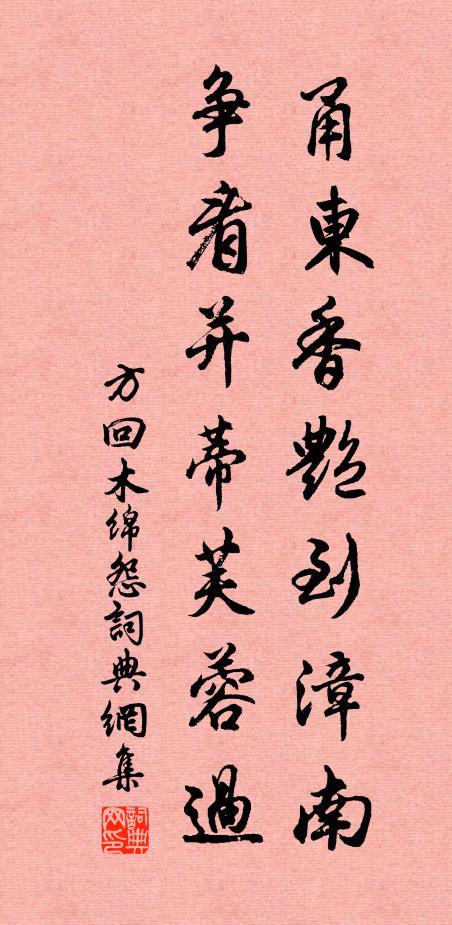 甬東香艷到漳南
争看并蒂芙蓉過
方回木綿怨詞典網集
詞典网印